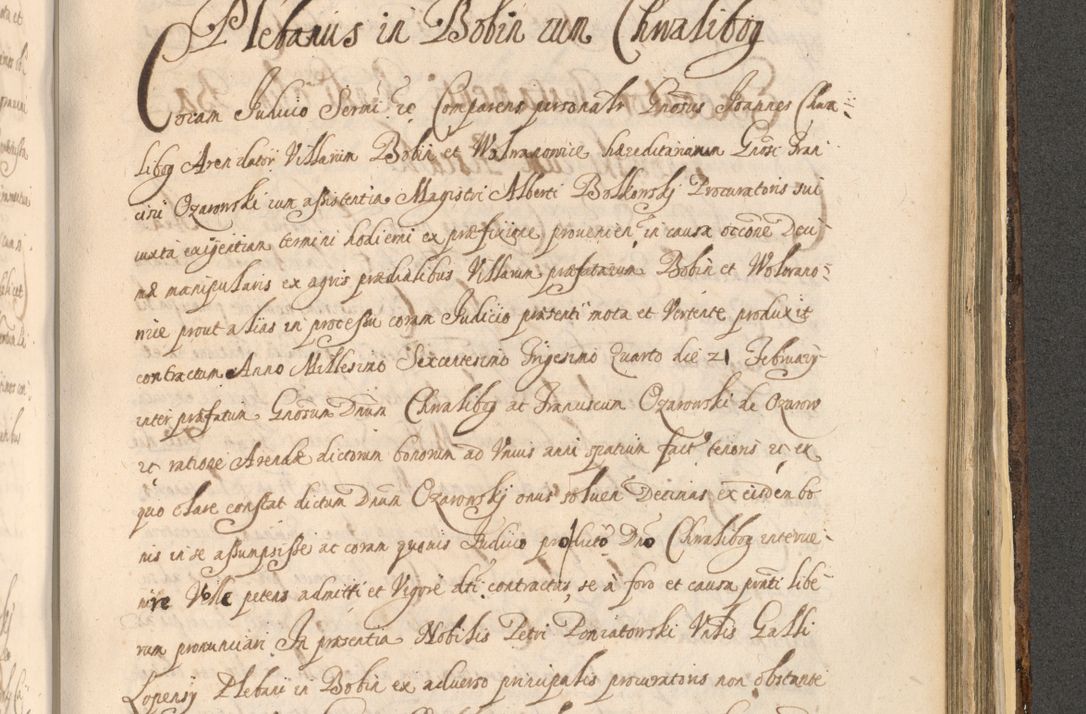 Plebanus in Bobin cum Chwalibog
Coram Judicio Sermi &c Comparens personalr Gnosus Joannes Chwa=
libog Arendator Villarum Bobin et Wolwanowice hæreditariarum Gnosi Fran
cisci Ozarowski cum assistentia Magistri Alberti Bolkowskj Procuratoris sui
iuxta exigentiam termini hodierni ex præfixione provenien in causa occōne Deci
mæ manipularis ex agris prædialibus Villarum præfatarum Bobin et Wolwano=
nice prout alias in processu coram Judicio præsenti mota et Vertente produxit
contractum Anno Millesimo Sexcentesimo Trigesimo Quarto die 21 February
inter præfatum Gnosum Dnum Chwalibog ac Franciscum Ozarowski de Ozarow
ac ratione Arendæ dictorum bonorum ad Vnius anni spatium fact tenoris &c ex
quo clare constat dictum Dnum Ozarowskj onus soluen Decimas ex eisdem bo
nis in se assumpsisse ac coram quouis Judicio pro dicto Dno Chwalibog interue=
nire Velle petens admitti et Vigore dti contractus se a foro et causa pnti libe
rum pronunciari In præsentia Nobilis Petri Poniatowski Vnlis Galli
Lopensy Plebani in Bobin ex aduerso principalis procuratoris non obstante